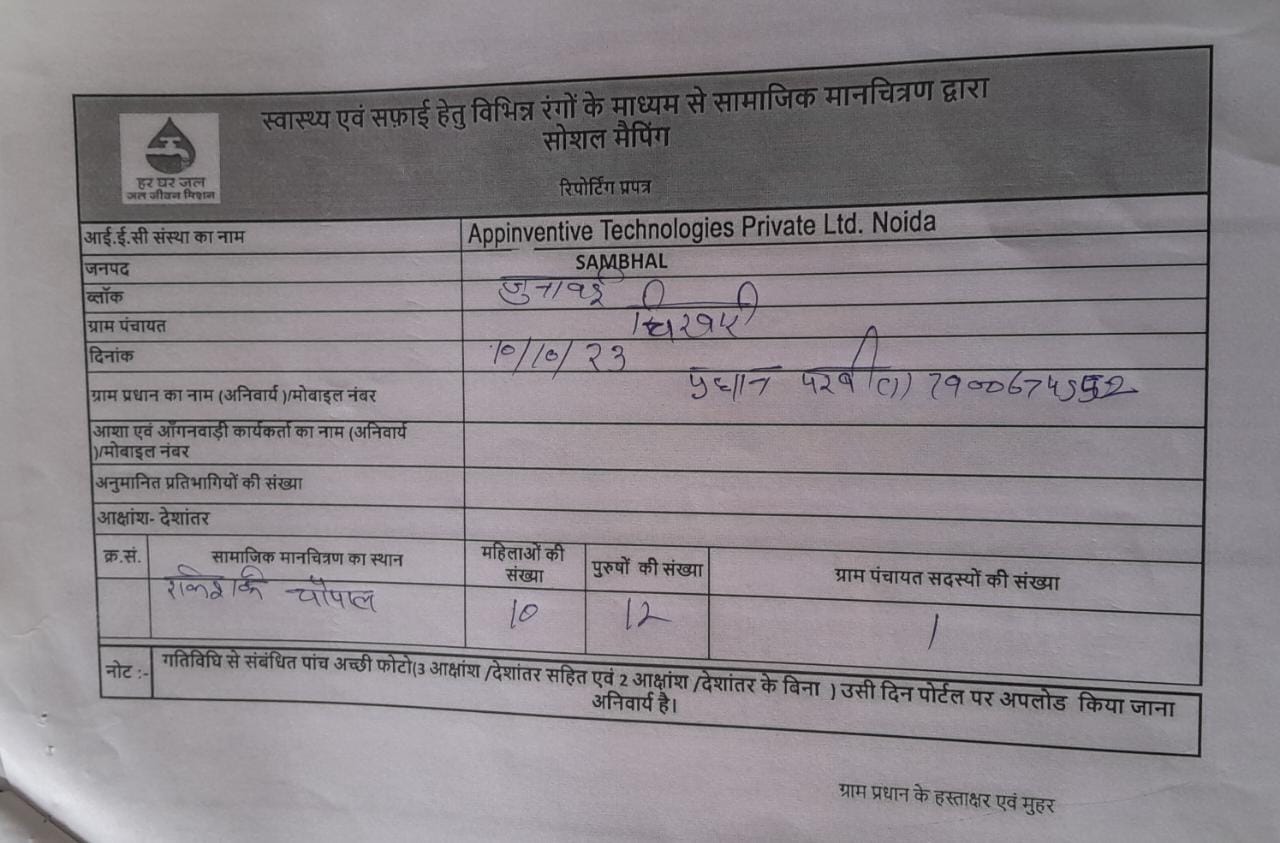 स्वास्थ्य एवं सफ़ाई हेतु विभिन्न रंगों के माध्यम से सामाजिक मानचित्रण द्वारा
सोशल मैपिंग
हर घर जल
जल जीवन मिशन
रिपोर्टिंग प्रपत्र
आई.ई.सी संस्था का नाम Appinventive Technologies Private Ltd. Noida
जनपद SAMBHAL
ब्लॉक जुनावई
ग्राम पंचायत
दिनांक 10/10/23
ग्राम प्रधान का नाम (अनिवार्य )/मोबाइल नंबर प्रधान
आशा एवं आँगनवाड़ी कार्यकर्ता का नाम (अनिवार्य
)/मोबाइल नंबर
अनुमानित प्रतिभागियों की संख्या
आक्षांश- देशांतर
क्र.सं. सामाजिक मानचित्रण का स्थान महिलाओं की संख्या पुरुषों की संख्या ग्राम पंचायत सदस्यों की संख्या
चौपाल 10 12 1
नोट :- गतिविधि से संबंधित पांच अच्छी फोटो(3 आक्षांश /देशांतर सहित एवं 2 आक्षांश /देशांतर के बिना ) उसी दिन पोर्टल पर अपलोड किया जाना
अनिवार्य है।
ग्राम प्रधान के हस्ताक्षर एवं मुहर